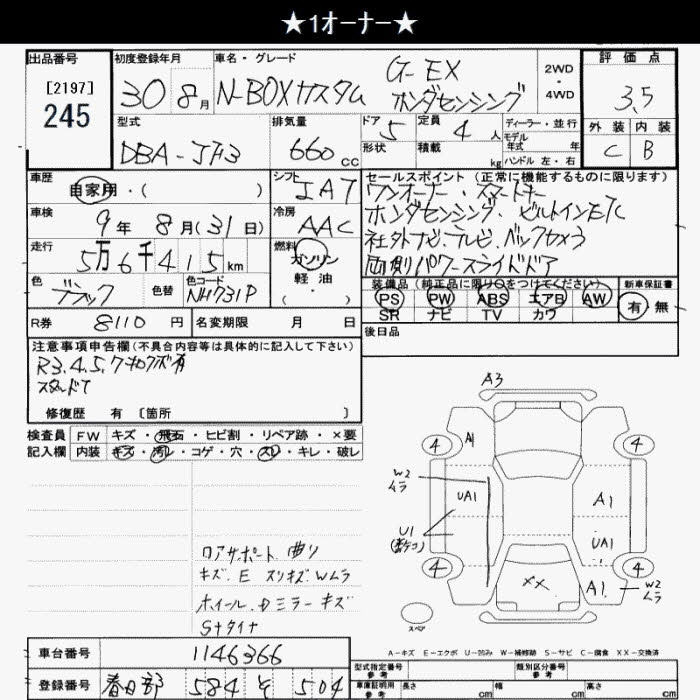 ★1オーナー★
出品番号 初度登録年月 車名・グレード 評価点
[2197]
245
30 8月 N-BOXカスタム G-EX ホンダセンシング 2WD・4WD 3.5
型式 排気量 ドア 5 定員 4人 ディーラー・並行 外装 内装
DBA-JF3 660cc 形状 積載 kg モデル年式 年 ハンドル 左・右 C B
車歴 自家用・( ) シフト IA7 セールスポイント (正常に機能するものに限ります)
ワンオーナー・スマートキー
車検 9年8月(31日) 冷房 AAC ホンダセンシング・ビルトインETC
社外ナビ・テレビ・バックカメラ
走行 5万6千415km 燃料 ガソリン・軽油・( ) 両側パワースライドドア
色 ブラック 色替 色コード NH731P 装備品 (純正品に限り○をつけてください) 新車保証書
PS PW ABS エアB AW 有 無
SR ナビ TV カワ
R券 8110円 名変期限 月 日 後日品
注意事項申告欄(不具合内容等は具体的に記入して下さい)
R3.4.5.7
修復歴 有〔箇所 〕
検査員 FW キズ・飛石・ヒビ割・リペア跡・×要
記入欄 内装 キズ・汚レ・コゲ・穴・スレ・キレ・破レ
A3
4 A1 4
W2 ムラ UA1 A1
U1 UA1
4 XX A1 4 W2 ムラ
スペア
リアサポート 曲り
キズ.E スリキズWムラ
ホイール.ドミラーキズ
Sナタイナ
A-キズ E-エクボ U-凹み W-補修跡 S-サビ C-腐食 XX-交換済
車台番号 1146366 型式指定番号 参考 類別区分番号 参考
登録番号 春日部 584 そ 504 車庫証明用 参考 長さ cm 幅 cm 高さ cm